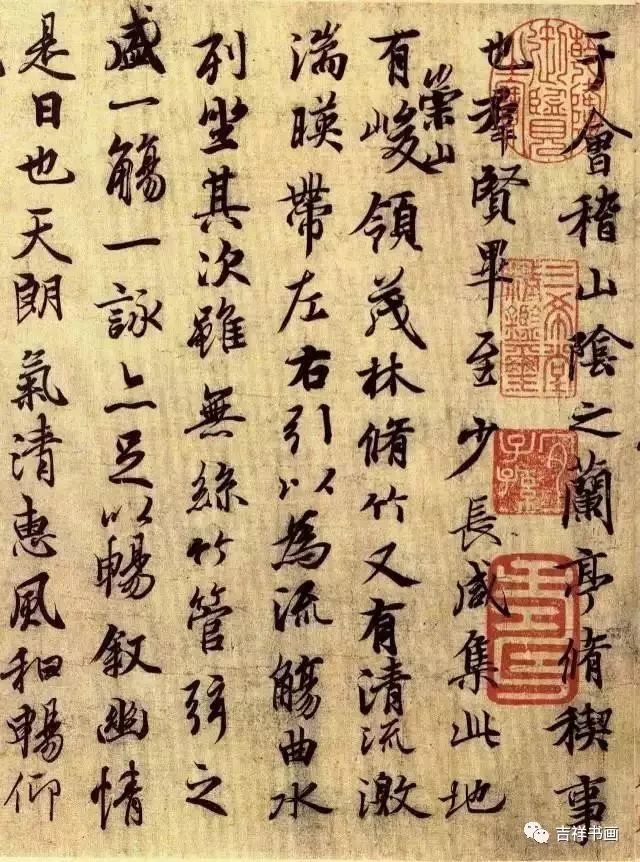 于會稽山陰之蘭亭脩稧事
也羣賢畢至少長咸集此地
有崇山峻領茂林脩竹又有清流激
湍暎帶左右引以為流觴曲水
列坐其次雖無絲竹管弦之
盛一觴一詠亦足以暢敘幽情
是日也天朗氣清惠風和暢仰
乾隆御覽之寶
三希堂精鑑璽
宜子孫
吉祥书画